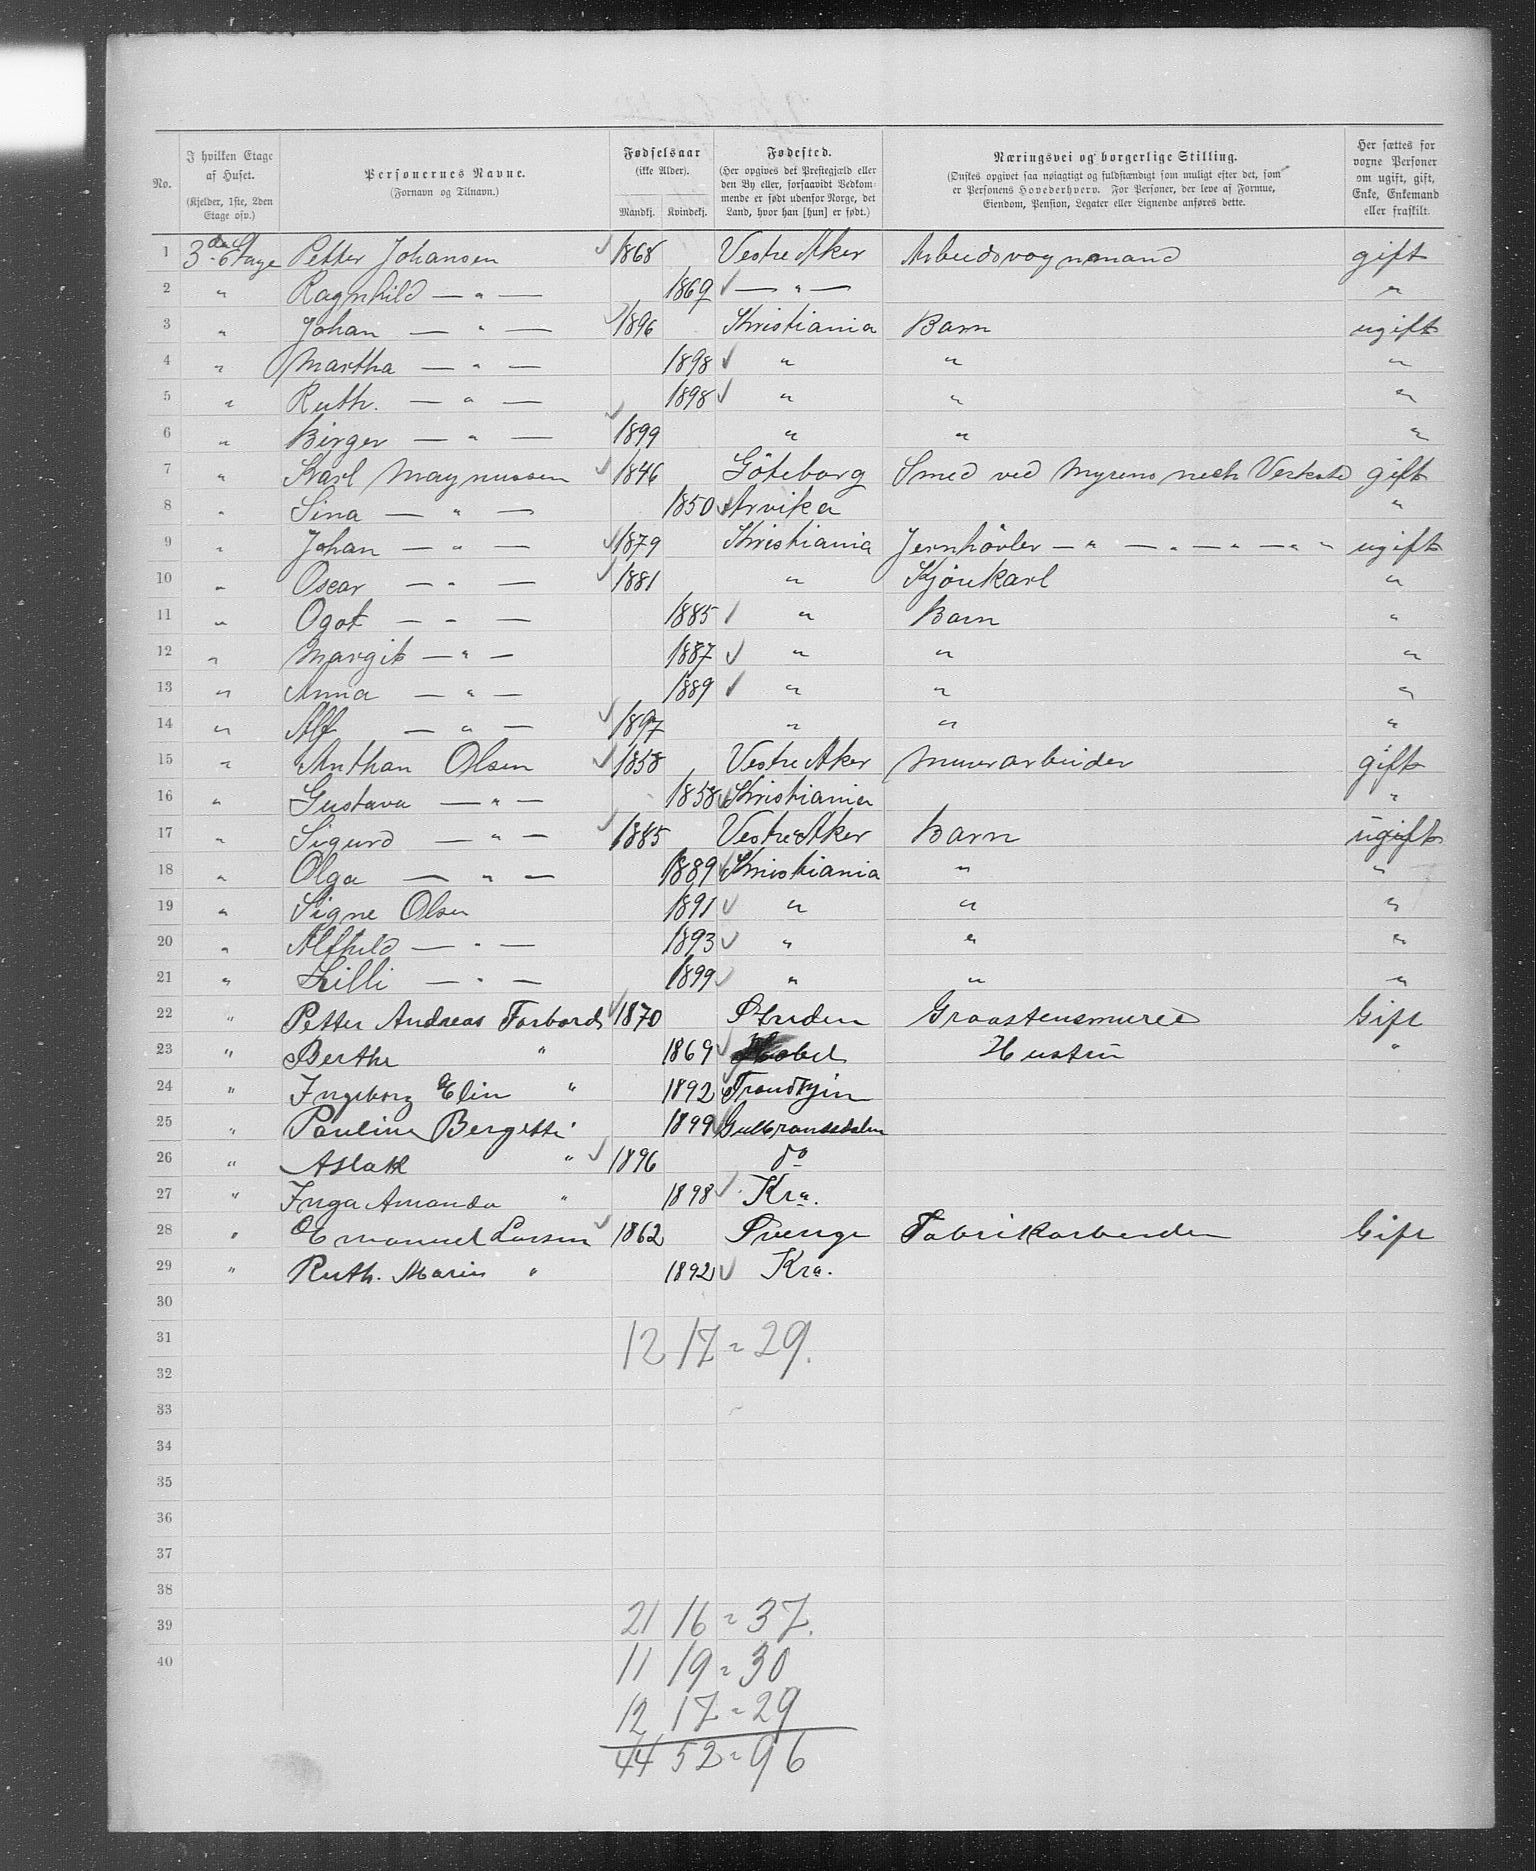 No.
I hvilken Etage af Huset. (Kjelder, 1ste, 2den Etage osv.)
Personernes Navne. (Fornavn og Tilnavn.)
Fødselsaar (ikke Alder). Mandkj. Kvindekj.
Fødested. (Her opgives det Prestegjæld eller den By eller, forsaavidt Vedkommende er født udenfor Norge, det Land, hvor han [hun] er født.)
Næringsvei og borgerlige Stilling. (Ønskes opgivet saa nøiagtigt og fuldstændigt som muligt efter det, som er Personens Hovederhverv. For Personer, der leve af Formue, Eiendom, Pension, Legater eller Lignende anføres dette.
Her sættes for voxne Personer om ugift, gift, Enke, Enkemand eller fraskilt.
1 3de Etage Petter Johansen 1868 Vestre Aker Arbeidsvognmand gift
2 " Ragnhild — " — 1869 — " — "
3 " Johan — " — 1896 Kristiania Barn ugift
4 " Martha — " — 1898 " " "
5 " Ruth. — " — 1898 " " "
6 " Birger — " — 1899 " " "
7 " Karl Magnussen 1846 Göteborg Smed ved Myrens mek Verksted gift
8 " Sina — " — 1850 Arvika "
9 " Johan — " — 1879 Kristiania Jernhøvler — " — " — " — " " ugift
10 " Oscar — " — 1881 " Kjørekarl "
11 " Ogot — " — 1885 " Barn "
12 " Margit — " — 1887 " " "
13 " Anna — " — 1889 " " "
14 " Alf — " — 1897 " " "
15 " Anthan Olsen 1858 Vestre Aker Murerarbeider gift
16 " Gustava — " — 1858 Kristiania "
17 " Sigurd — " — 1885 Vestre Aker Barn ugift
18 " Olga — " — 1889 Kristiania " "
19 " Signe Olsen 1891 " " "
20 " Alfhild — " — 1893 " " "
21 " Lilli — " — 1899 " " "
22 " Petter Andreas Forbord 1870 Graastensmurer Gift
23 " Berthe " 1869 Hustru "
24 " Ingeborg Elin " 1892 Trondhjem
25 " Pauline Bergitte " 1899 Gulbransdalen
26 " Aslak " 1896 do
27 " Inga Amanda " 1898 Kra.
28 " Emanuel Larsen 1862 Sverige Fabrikarbeider Gift
29 " Ruth. Marie " 1892 Kra.
30
31 12 17 = 29.
32
33
34
35
36
37
38
39 21 16 = 37.
40 11 19 = 30
12 17 = 29
44 52 = 96